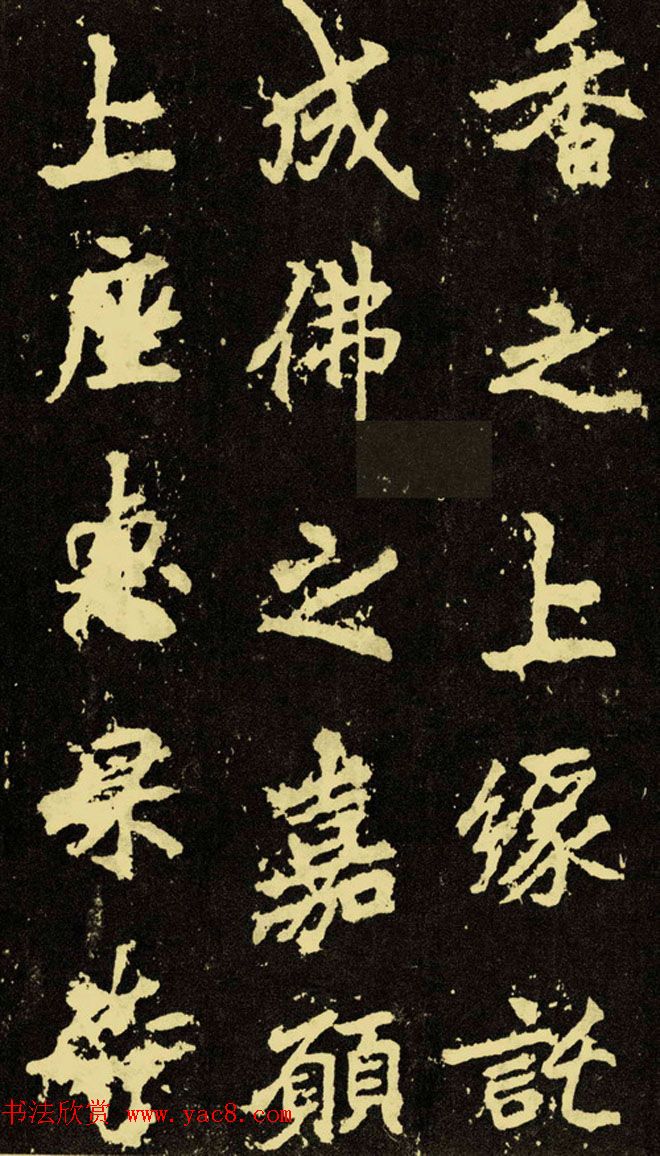 香之上緣託
成佛之嘉願
上座惠杲寺
书法欣赏 www.yac8.com